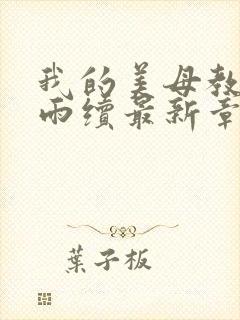 我的美母教
雨续最新章
葉子板